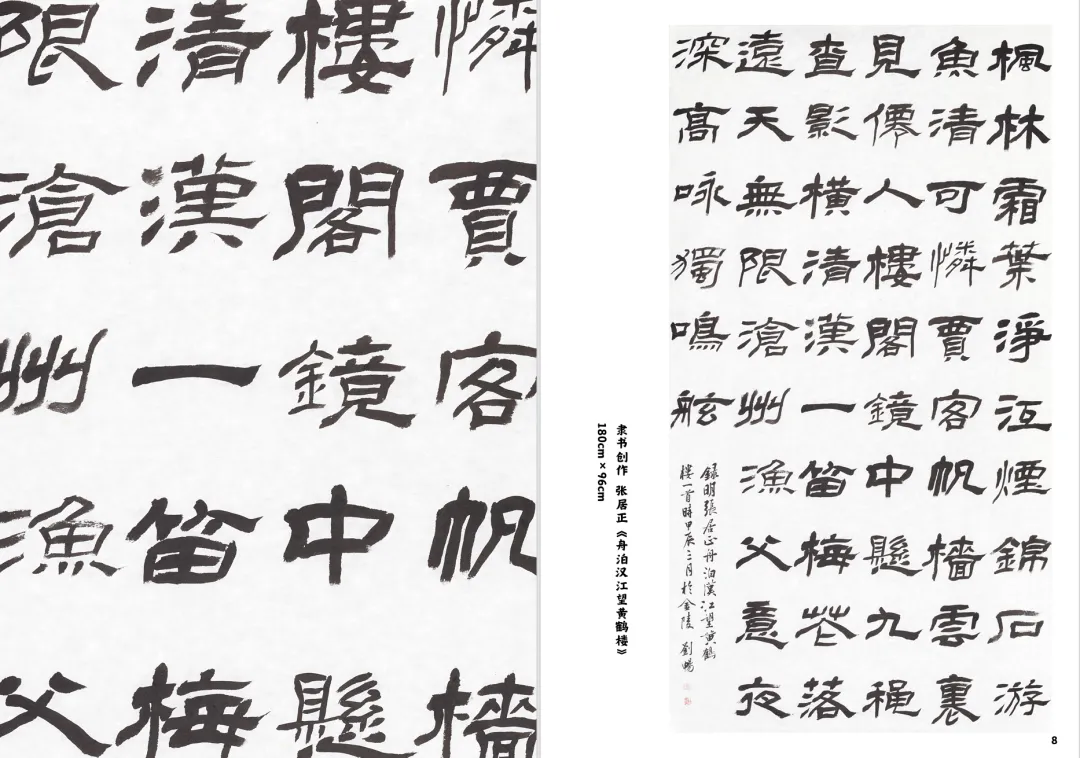 限滄州漁父
清漢一笛梅
樓閣鏡中懸
憐賈客帆檣
楓林霜葉淨江煙錦石游
魚清可憐賈客帆檣雲裏
見僊人樓閣鏡中懸九穐
查影橫清漢一笛梅花落
遠天無限滄州漁父意夜
深高咏獨鳴舷
錄明張居正舟泊漢江望黃鶴
樓一首時甲辰三月於金陵 劉暢
隶书创作 张居正《舟泊汉江望黄鹤楼》
180cm × 96cm
8